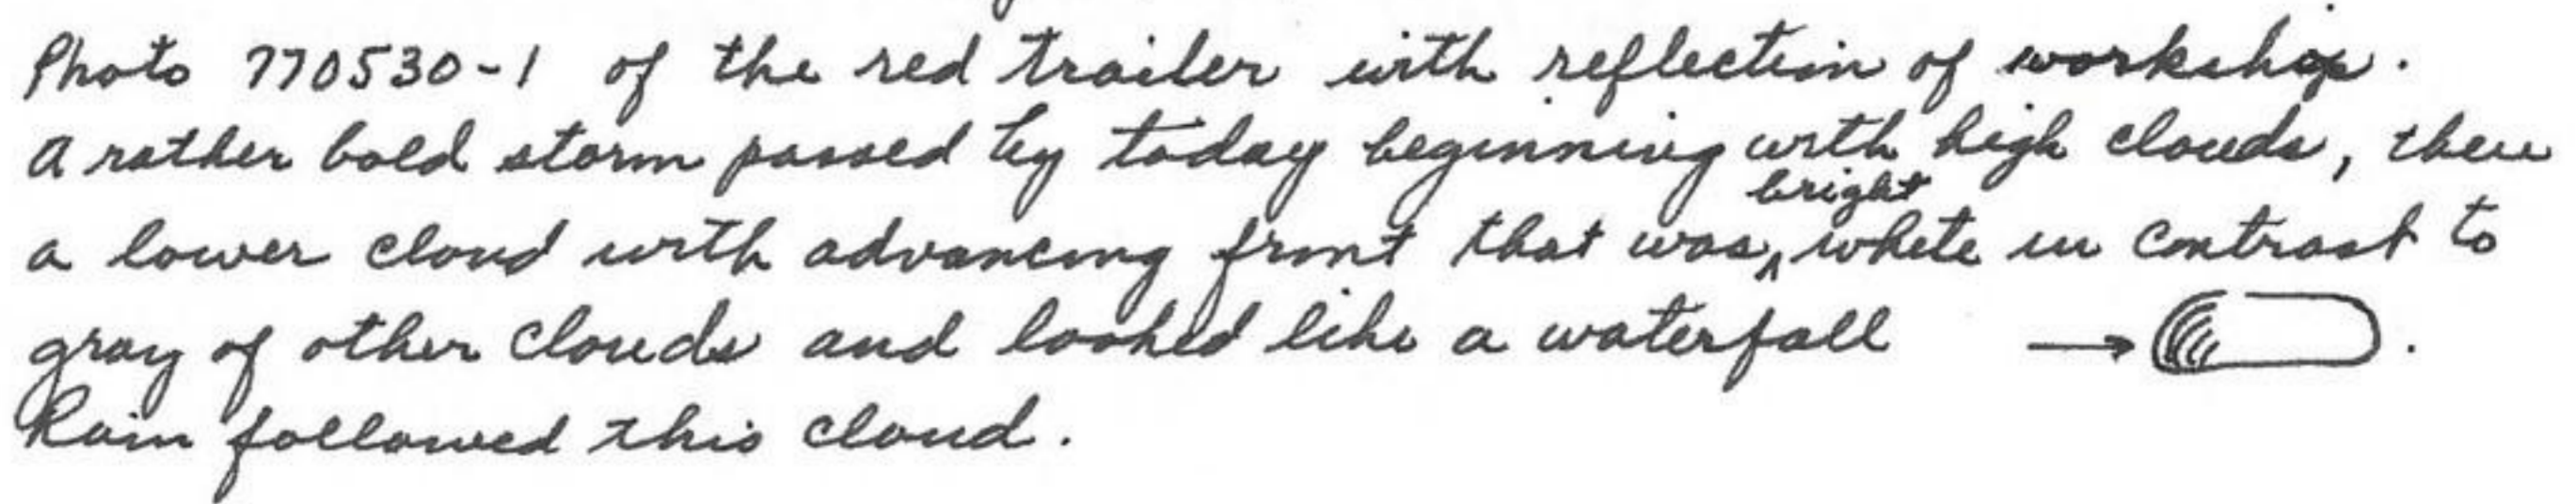 Photo 770530-1 of the red trailer with reflection of workshop.
A rather bold storm passed by today beginning with high clouds, then
a lower cloud with advancing front that was bright white in contrast to
gray of other clouds and looked like a waterfall → .
Rain followed this cloud.